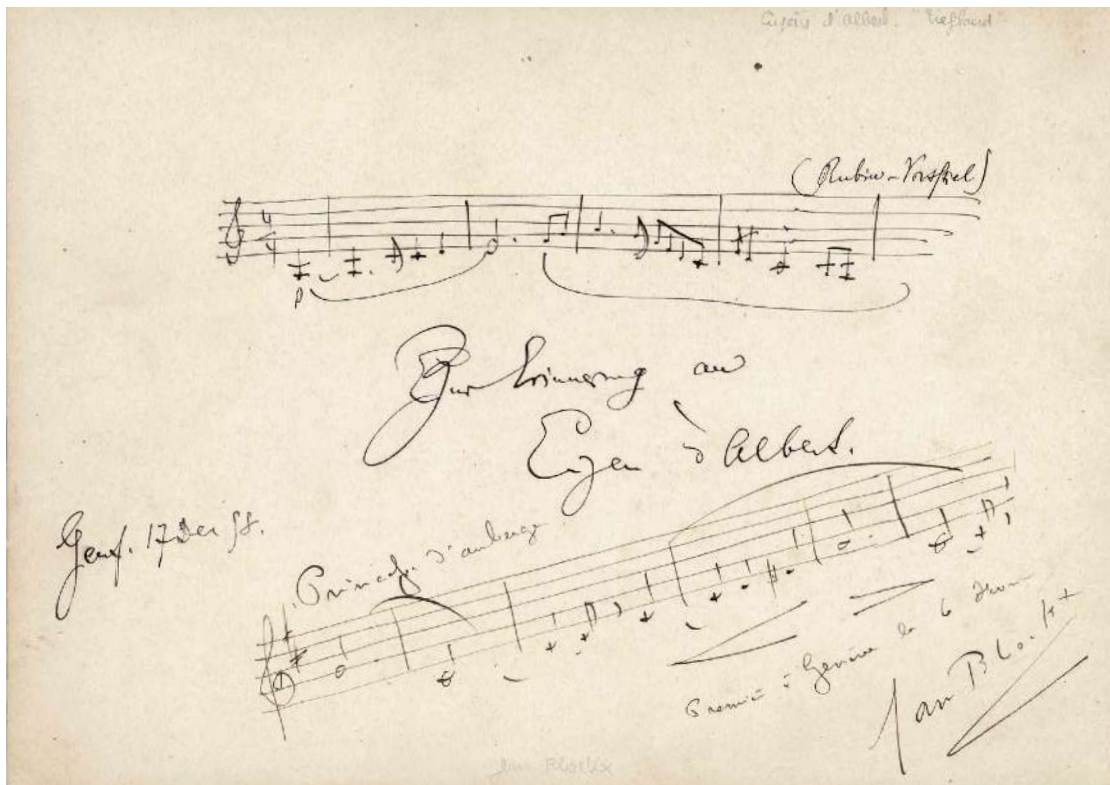 Eugène d'Albert. "Tiefland"
(Rubin-Vorspiel)
4
4
p
Zur Erinnerung an
Eugen d'Albert.
Genf. 17 Dez
Princesse d'auberge
à Genève le 6
Jan Blockx
Jan Blockx